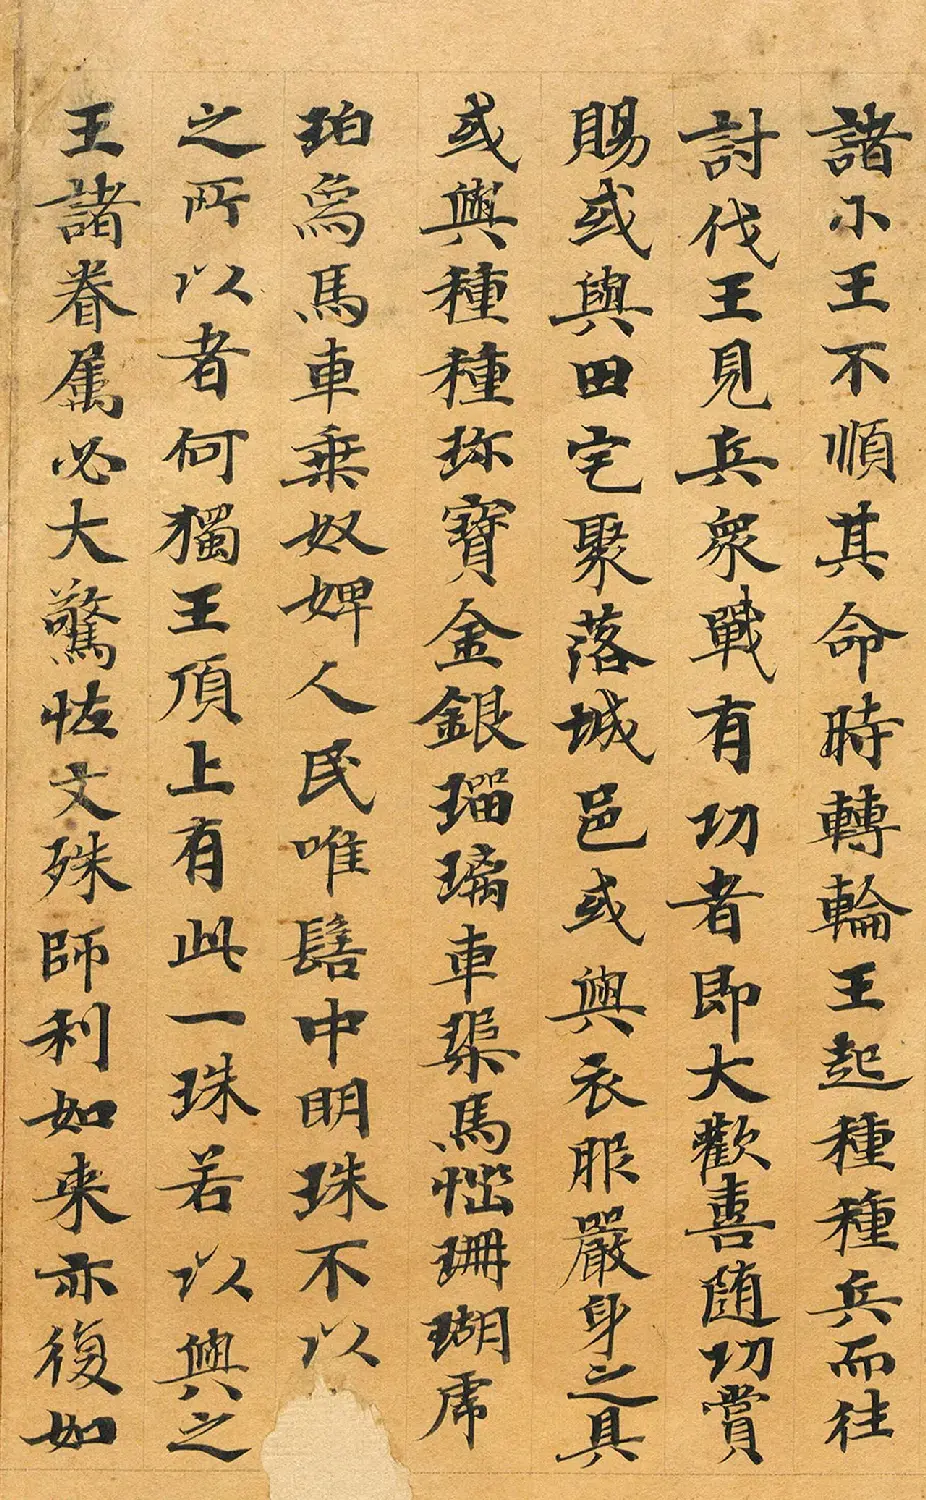 諸小王不順其命時轉輪王起種種兵而往
討伐王見兵衆戰有功者即大歡喜隨功賞
賜或與田宅聚落城邑或與衣服嚴身之具
或與種種珎寶金銀瑠璃車渠馬惱珊瑚虎
珀象馬車乘奴婢人民唯髻中明珠不以
之所以者何獨王頂上有此一珠若以與之
王諸眷屬必大驚恠文殊師利如来亦復如